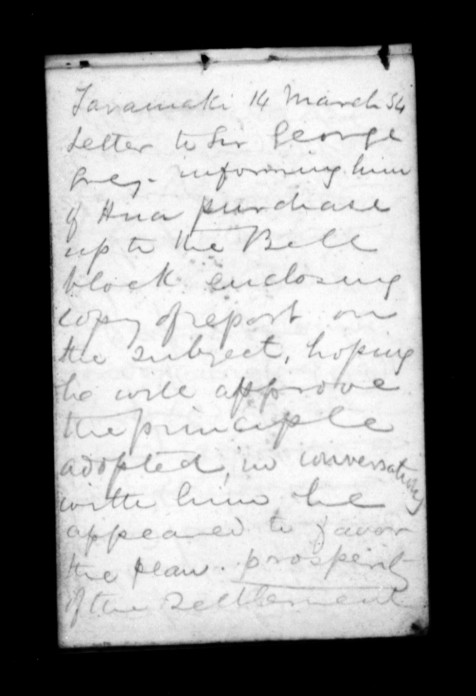 Taranaki 14 March 54
Letter to Sir George
Grey. informing him
of Hua purchase
up to the Bell
block enclosing
copy of report on
the subject, hoping
he will approve
the principle
adopted, in conversation
with him he
appeared to favor
the plan. prosperity
of the Settlement